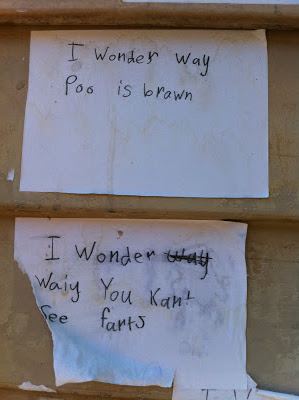 I Wonder way
Poo is brawn
I Wonder way
Waiy You Kant
See farts